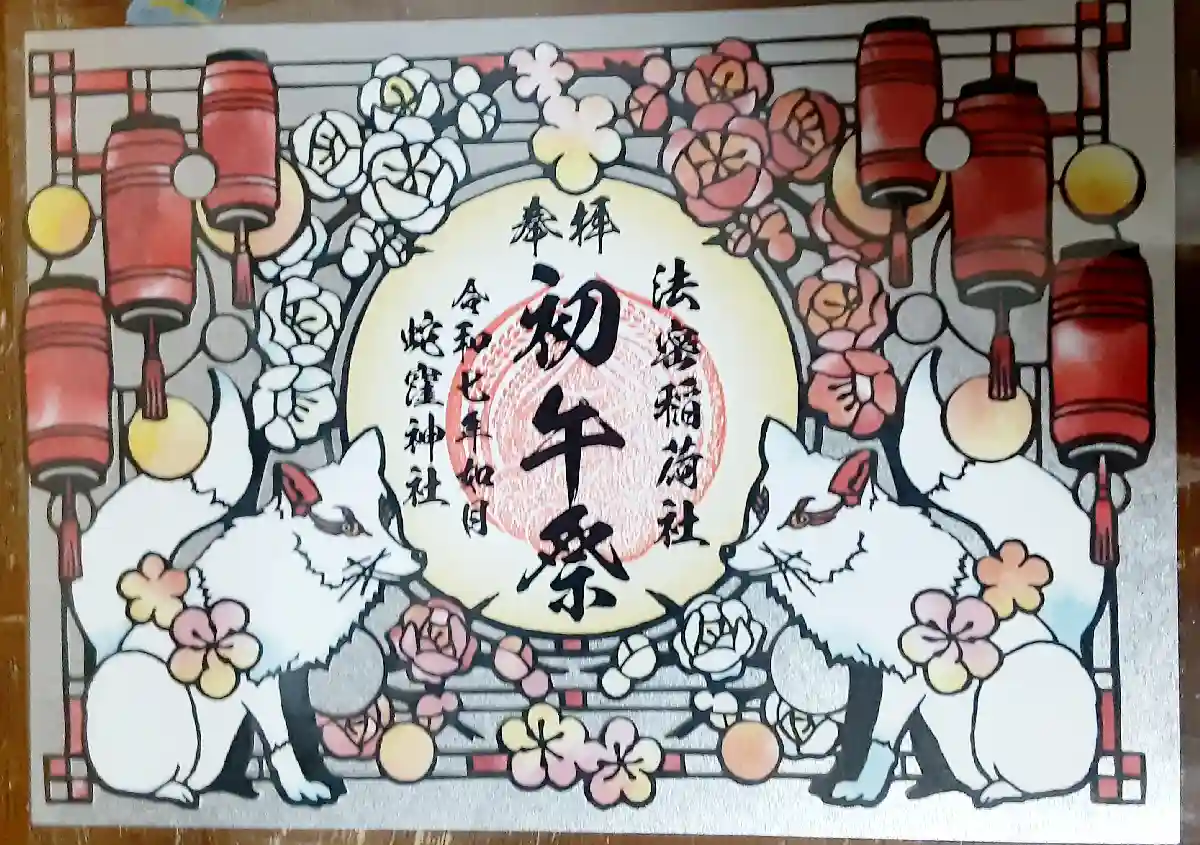 奉拝
法密稲荷社
初午祭
令和七年如月
蛇窪神社